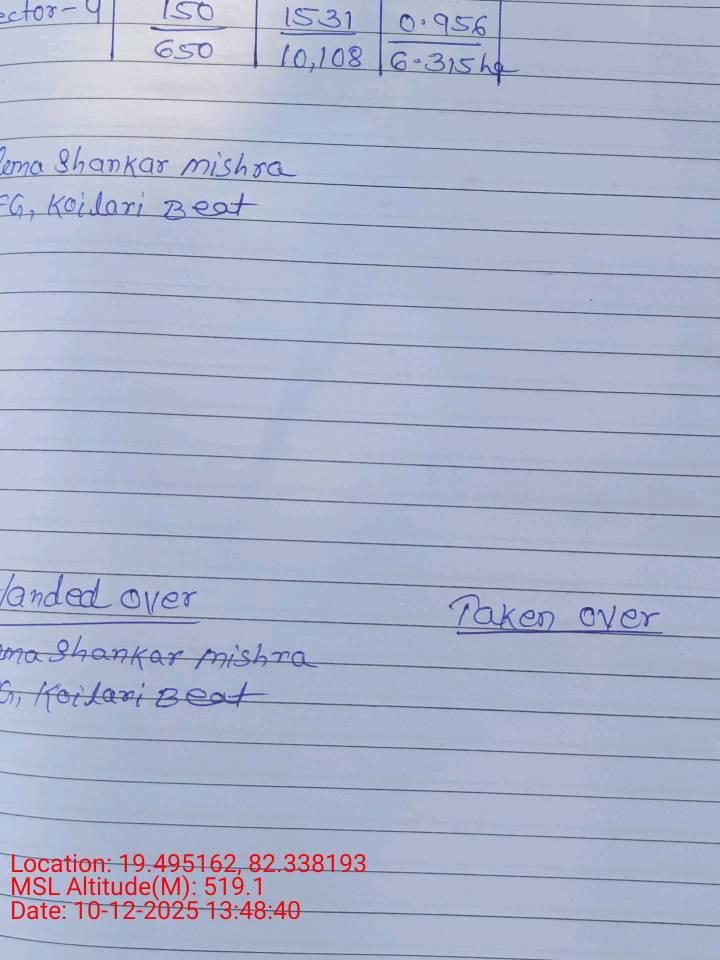 ector-4 150 1531 0.956
650 10,108 6.315ha
ema Shankar mishra
FG, Koilari Beat
Handed over Taken over
ma Shankar mishra
G, Koilari Beat
Location: 19.495162, 82.338193
MSL Altitude(M): 519.1
Date: 10-12-2025 13:48:40